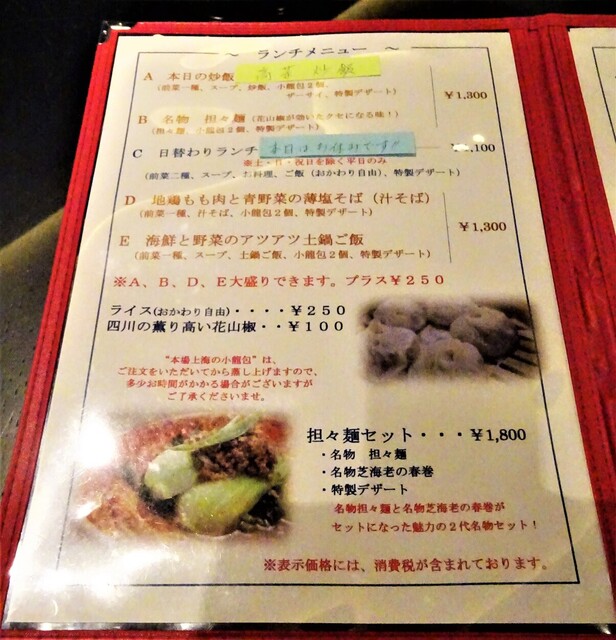 ～ ランチメニュー ～
A 本日の炒飯 高菜 炒飯
(前菜一種、スープ、炒飯、小龍包２個、
ザーサイ、特製デザート)
¥1,300
B 名物 担々麺(花山椒が効いたクセになる味！)
(担々麺、小龍包２個、特製デザート)
C 日替わりランチ 本日はお休みです!! ,100
※土・日・祝日を除く平日のみ
(前菜二種、スープ、お料理、ご飯(おかわり自由)、特製デザート)
D 地鶏もも肉と青野菜の薄塩そば(汁そば)
(前菜一種、汁そば、小龍包２個、特製デザート)
¥1,300
E 海鮮と野菜のアツアツ土鍋ご飯
(前菜一種、スープ、土鍋ご飯、小龍包２個、特製デザート)
※A、B、D、E大盛りできます。プラス¥２５０
ライス(おかわり自由)・・・・¥２５０
四川の薫り高い花山椒・・¥１００
"本場上海の小龍包"は、
ご注文をいただいてから蒸し上げますので、
多少お時間がかかる場合がございますが
ご了承くださいませ。
担々麺セット・・・¥1,800
・名物 担々麺
・名物芝海老の春巻
・特製デザート
名物担々麺と名物芝海老の春巻が
セットになった魅力の２代名物セット！
※表示価格には、消費税が含まれております。